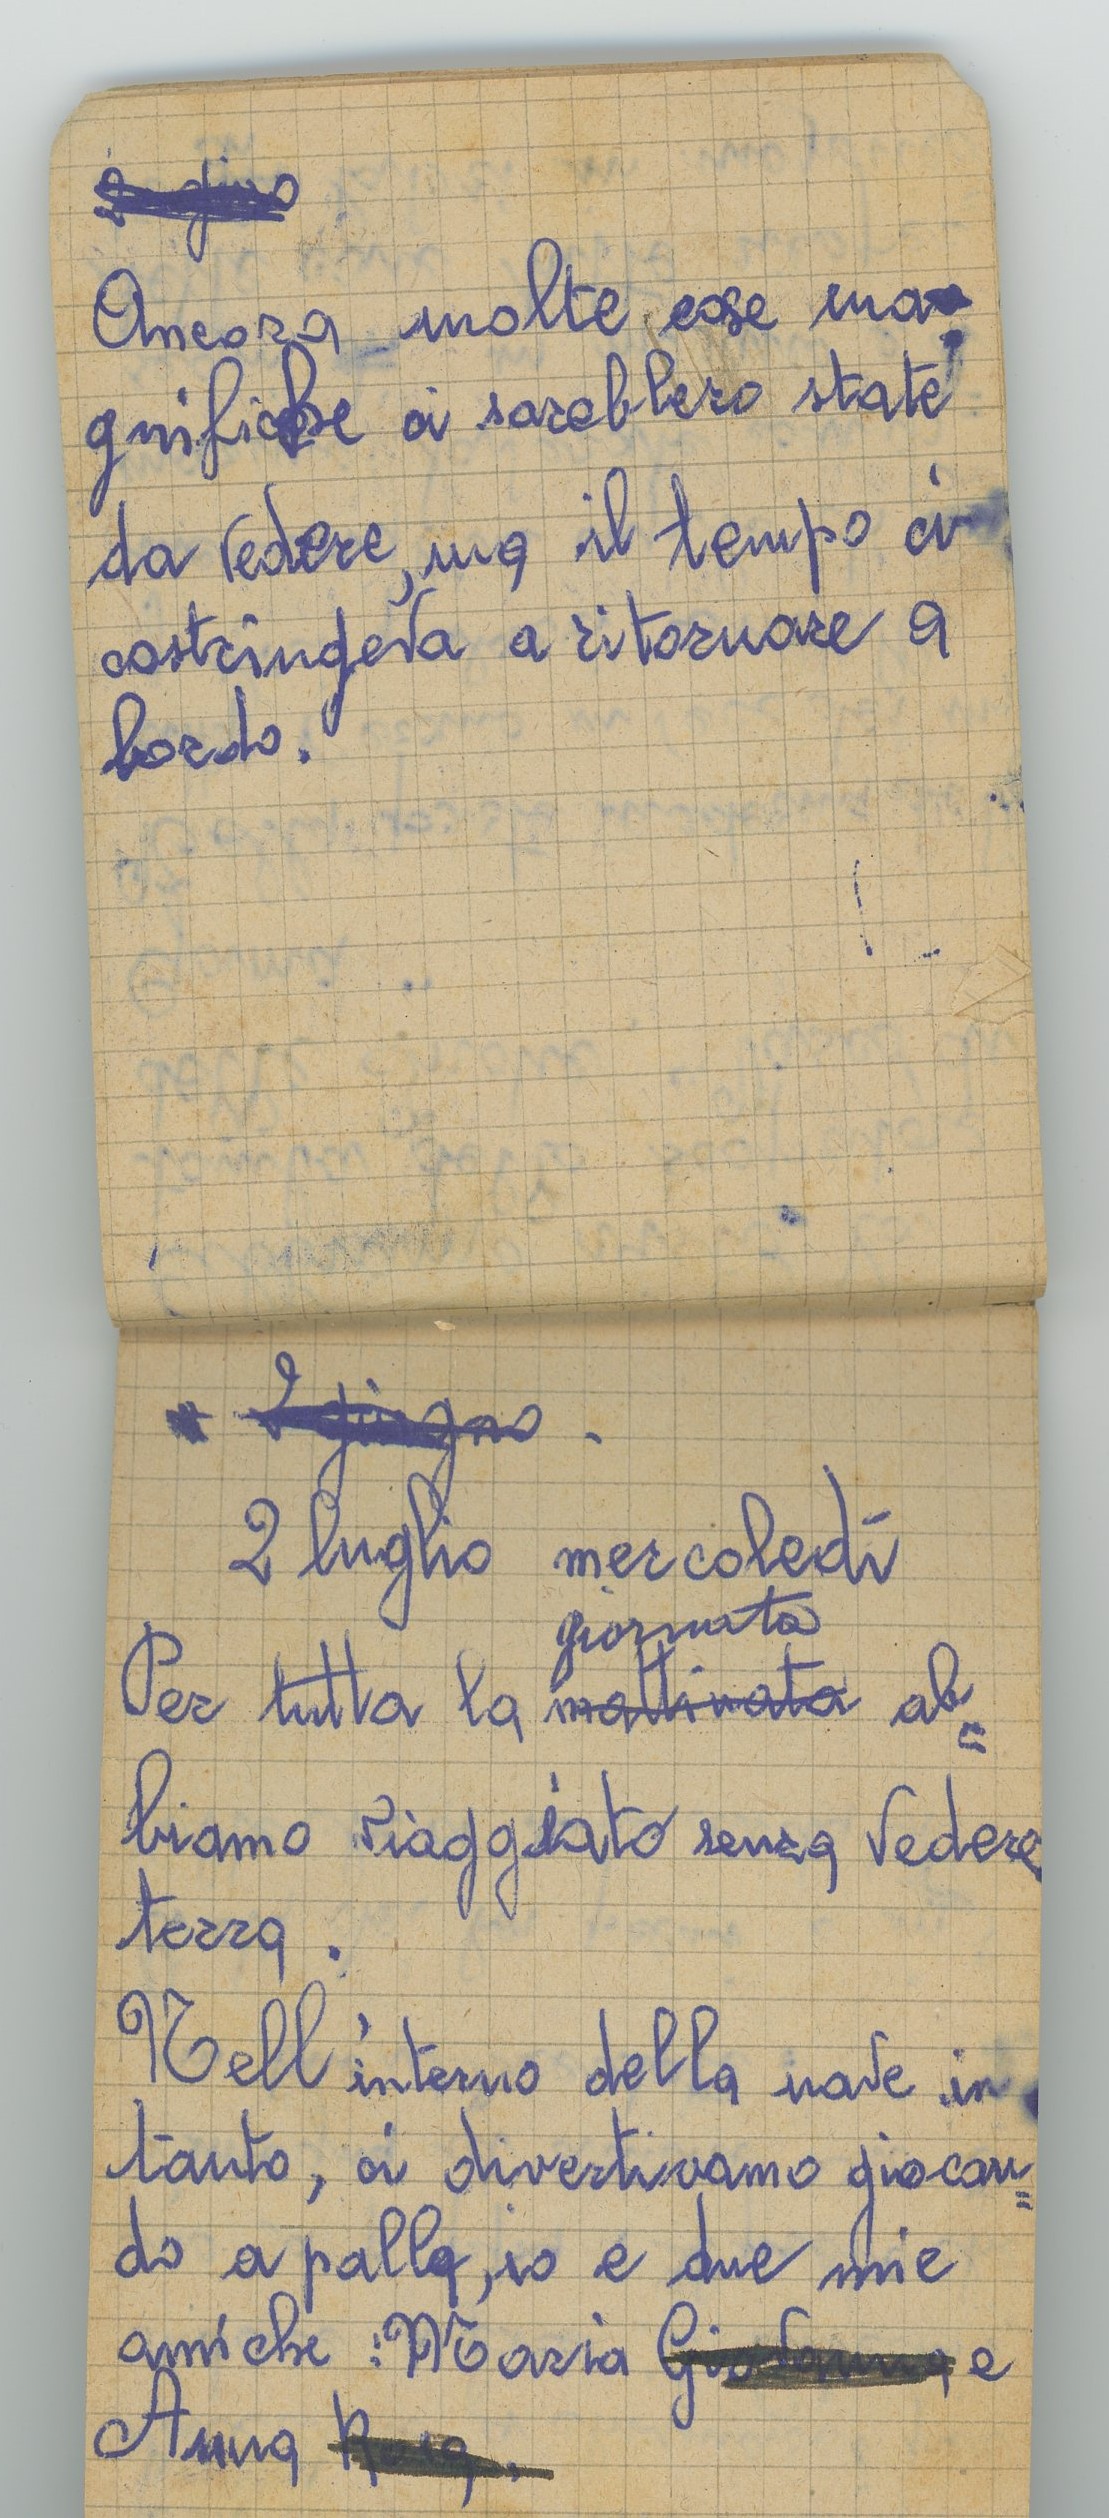 2 giugno
Ancora molte cose ma=
gnifiche ci sarebbero state
da vedere, ma il tempo ci
costringeva a ritornare a
bordo.
2 giugno.
2 luglio mercoledì
giornata
Per tutta la mattinata ab=
biamo viaggiato senza vedere
terra.
Nell'interno della nave in
tanto, ci divertivamo giocan=
do a palla, io e due mie
amiche: Maria Giovanna e
Anna Rosa.